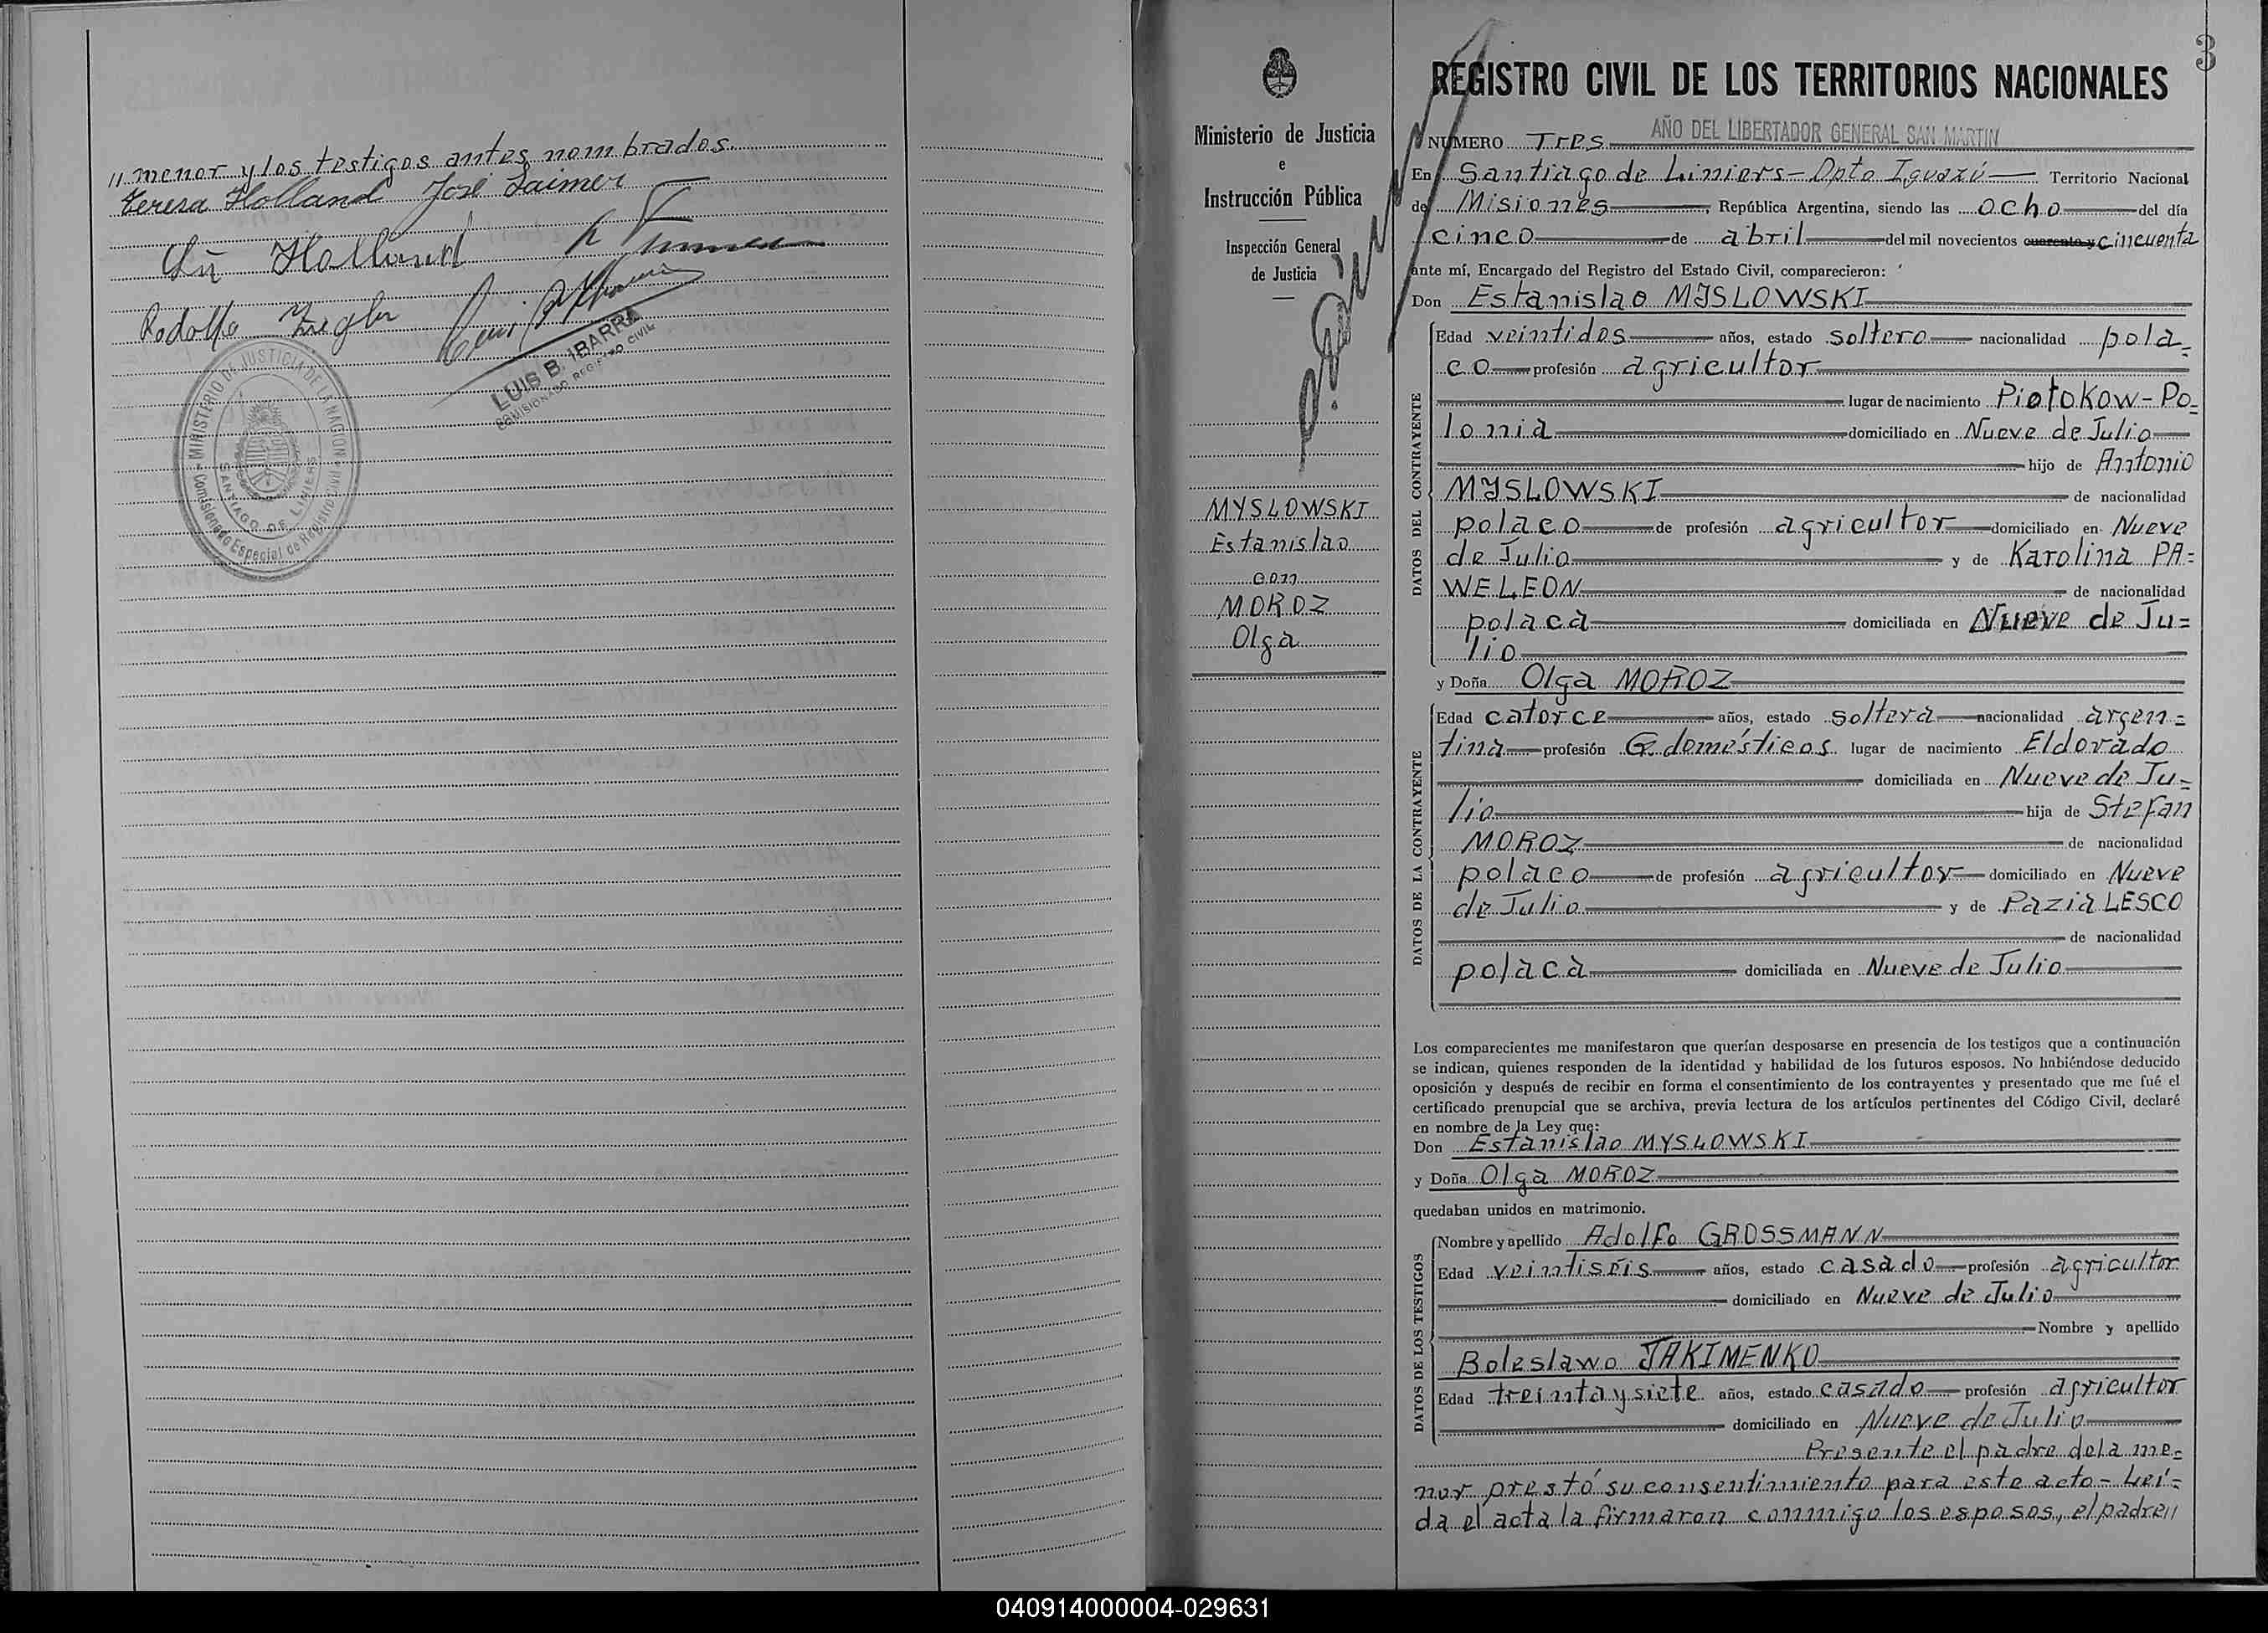 // menor y los testigos antes nombrados.
Teresa Holland José Laimer
Holland
Rodolfo
LUIS B. IBARRA
COMISIONADO REGISTRO CIVIL
MINISTERIO DE JUSTICIA DE LA NACION
SANTIAGO DE LINIERS
Especial de Registro Civil
3
Ministerio de Justicia
e
Instrucción Pública
Inspección General
de Justicia
MYSLOWSKI
Estanislao
con
MOROZ
Olga
REGISTRO CIVIL DE LOS TERRITORIOS NACIONALES
AÑO DEL LIBERTADOR GENERAL SAN MARTIN
NÚMERO Tres
En Santiago de Liniers - Dpto Iguazú Territorio Nacional
de Misiones, República Argentina, siendo las ocho del día
cinco de abril del mil novecientos cuarenta y cincuenta
ante mí, Encargado del Registro del Estado Civil, comparecieron:
Don Estanislao MYSLOWSKI
DATOS DEL CONTRAYENTE
Edad veintidos años, estado soltero nacionalidad pola=
co profesión agricultor
lugar de nacimiento Piotokow - Po=
lonia domiciliado en Nueve de Julio
hijo de Antonio
MYSLOWSKI de nacionalidad
polaco de profesión agricultor domiciliado en Nueve
de Julio y de Karolina PA=
WELEON de nacionalidad
polaca domiciliada en Nueve de Ju=
lio
y Doña Olga MOROZ
DATOS DE LA CONTRAYENTE
Edad catorce años, estado soltera nacionalidad argen=
tina profesión Q. domésticos lugar de nacimiento Eldorado
domiciliada en Nueve de Ju=
lio hija de Stefan
MOROZ de nacionalidad
polaco de profesión agricultor domiciliado en Nueve
de Julio y de Pazia LESCO
de nacionalidad
polaca domiciliada en Nueve de Julio
Los comparecientes me manifestaron que querían desposarse en presencia de los testigos que a continuación
se indican, quienes responden de la identidad y habilidad de los futuros esposos. No habiéndose deducido
oposición y después de recibir en forma el consentimiento de los contrayentes y presentado que me fué el
certificado prenupcial que se archiva, previa lectura de los artículos pertinentes del Código Civil, declaré
en nombre de la Ley que:
Don Estanislao MYSLOWSKI
y Doña Olga MOROZ
quedaban unidos en matrimonio.
DATOS DE LOS TESTIGOS
Nombre y apellido Adolfo GROSSMANN
Edad veintiseis años, estado casado profesión agricultor
domiciliado en Nueve de Julio
Nombre y apellido
Boleslawo JAKIMENKO
Edad treinta y siete años, estado casado profesión agricultor
domiciliado en Nueve de Julio
Presente el padre de la me=
nor prestó su consentimiento para este acto = Leí=
da el acta la firmaron conmigo los esposos, el padre//
040914000004-029631